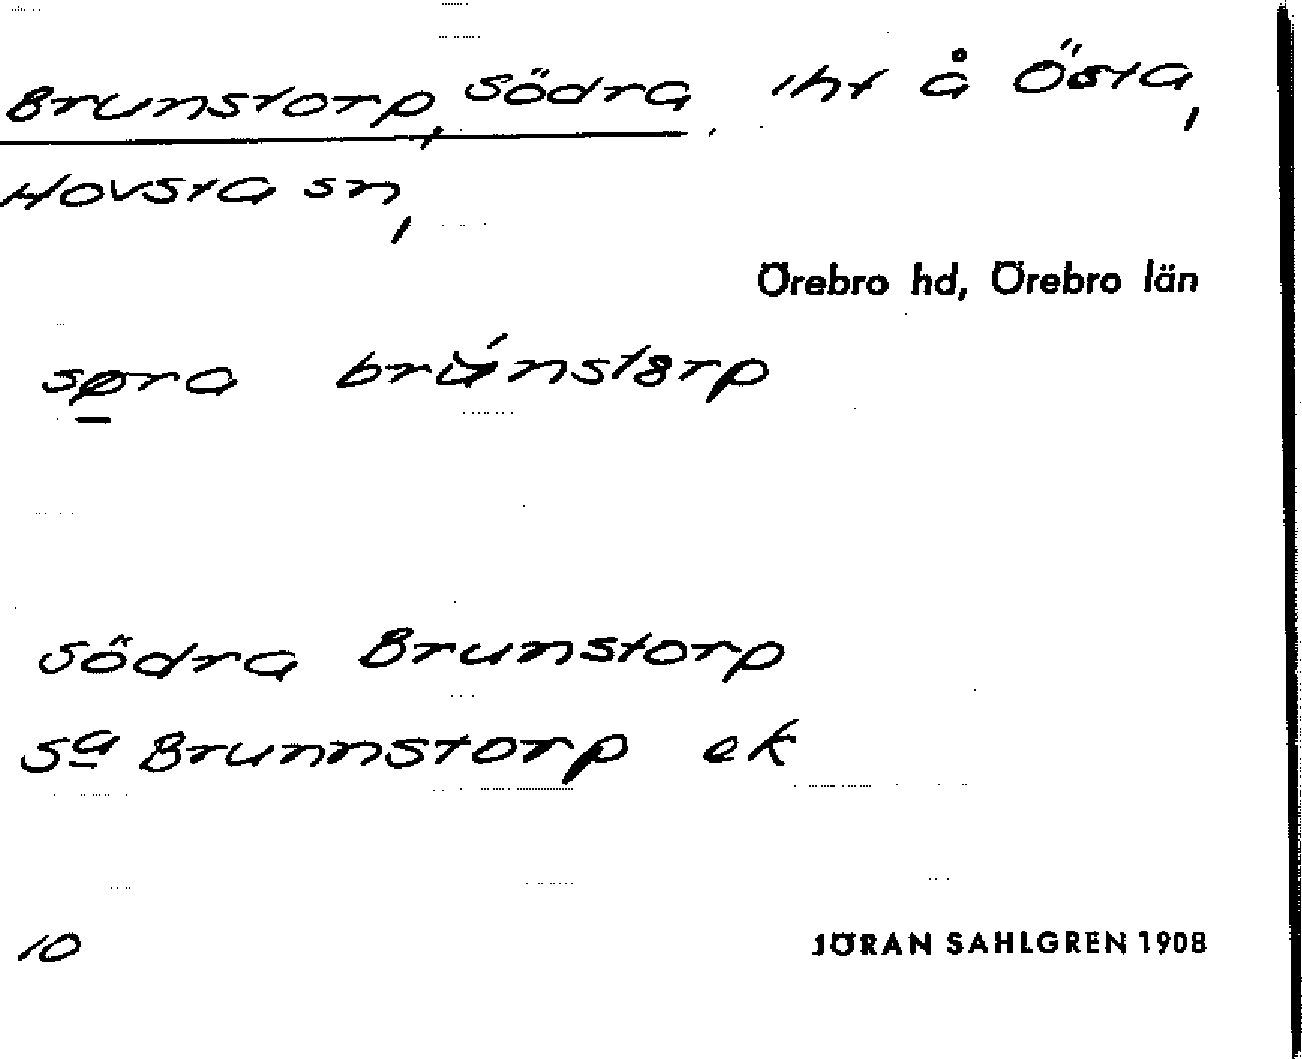 Brunstorp, Södra, tht å Östa,
Hovsta sn,
Örebro hd, Örebro län
søra bru̇́nstɜrp
Södra Brunstorp
Sa Brunnstorp ek
10
JÖRAN SAHLGREN 1908